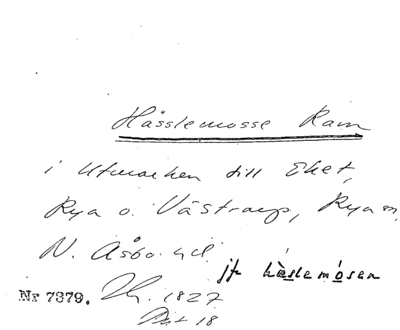 Hässlemosse Ram
i Utmarken till Eket,
Rya o. Västraup, Rya sn,
N. Åsbo hd
jfr häslemósen
Nr 7379. 1827
Akt 18